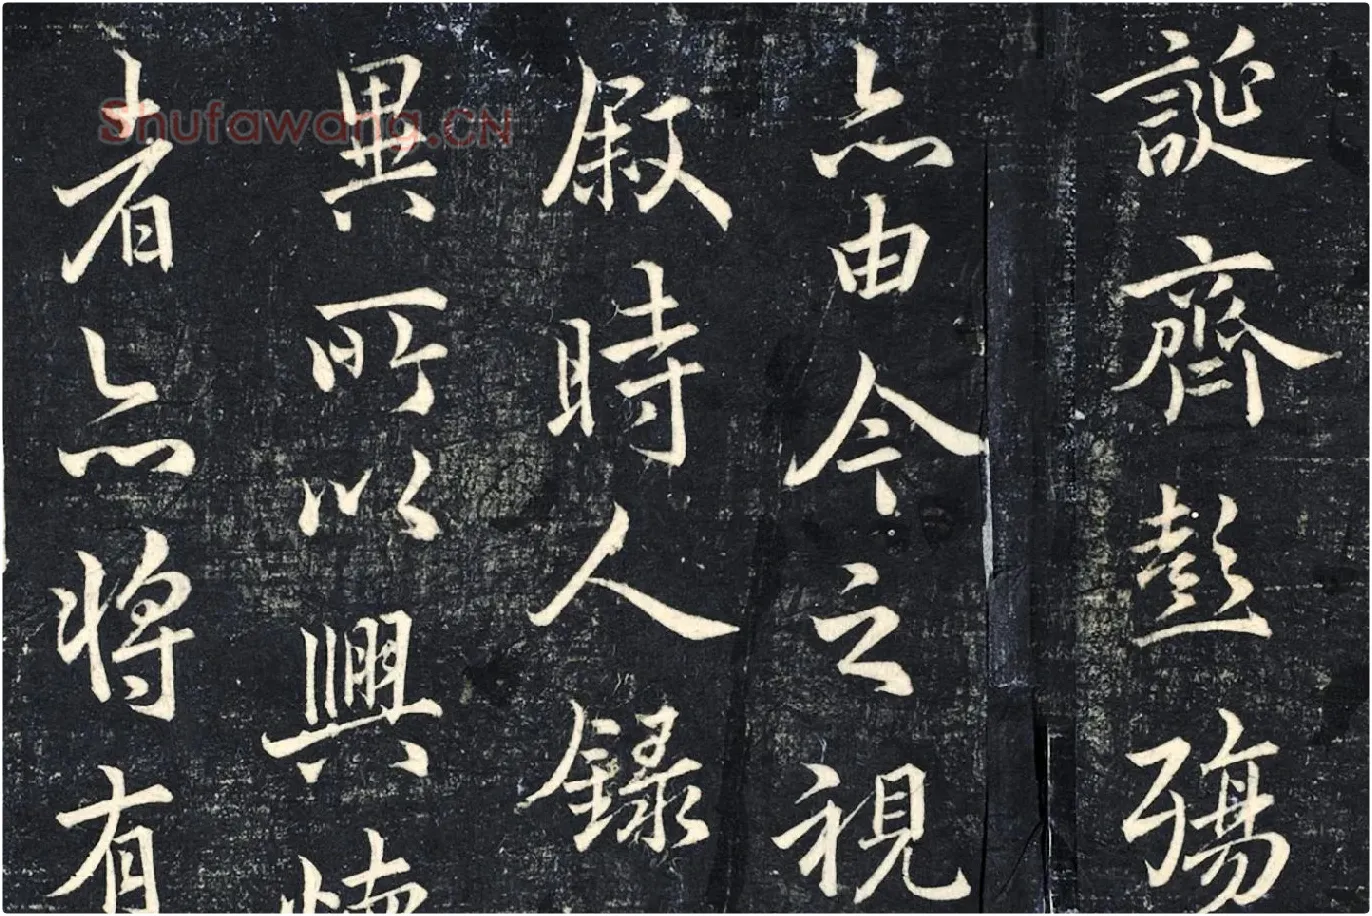 誕齊彭殤
亦由今之視
叙時人錄
異所以興懷
者亦將有
Shufawang.CN